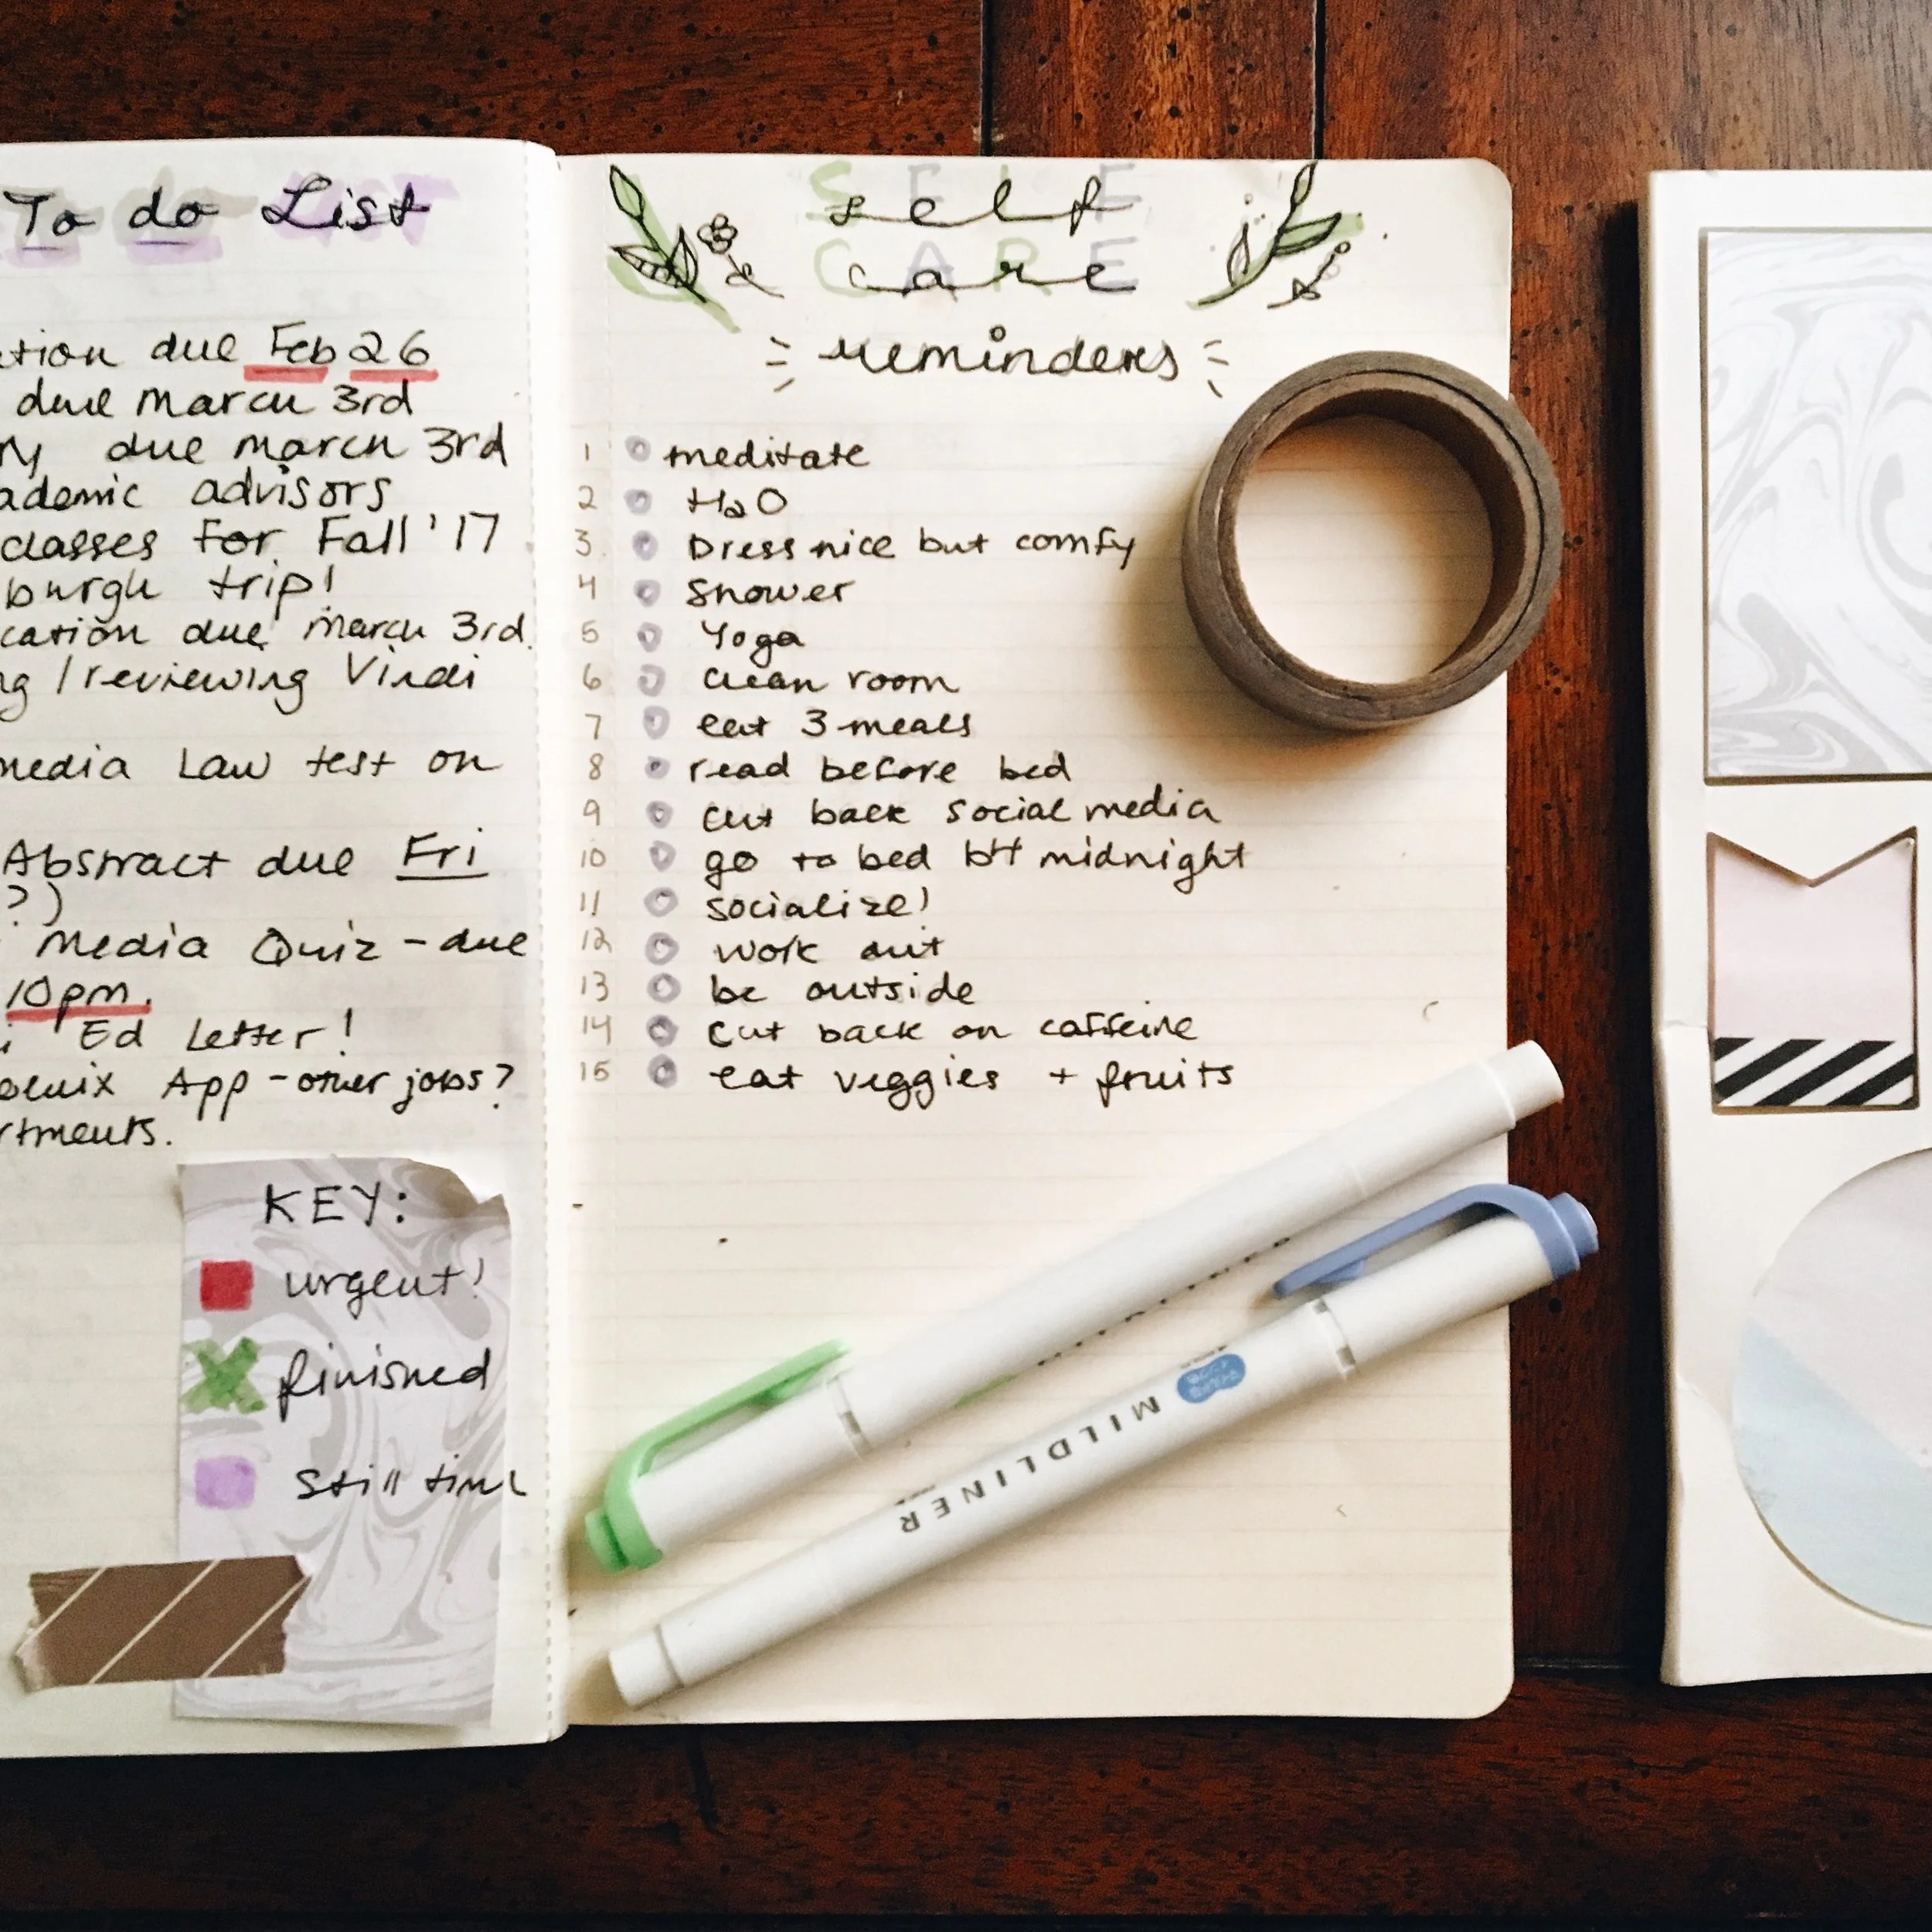 To do List
tion due Feb 26
due march 3rd
due march 3rd
ademic advisors
classes for Fall '17
burgh trip!
cation due march 3rd
ng / reviewing Virdi
media Law test on
Abstract due Fri
?)
media Quiz - due
10pm.
Ed Letter!
App - other jobs?
rtments.
KEY:
urgent!
finished
Still time
SELF
self
CARE
care
reminders
1 meditate
2 H2O
3. Dress nice but comfy
4 Shower
5 Yoga
6 clean room
7 eat 3 meals
8 read before bed
9 cut back social media
10 go to bed b4 midnight
11 socialize!
12 work out
13 be outside
14 cut back on caffeine
15 eat veggies + fruits
MILDLINER